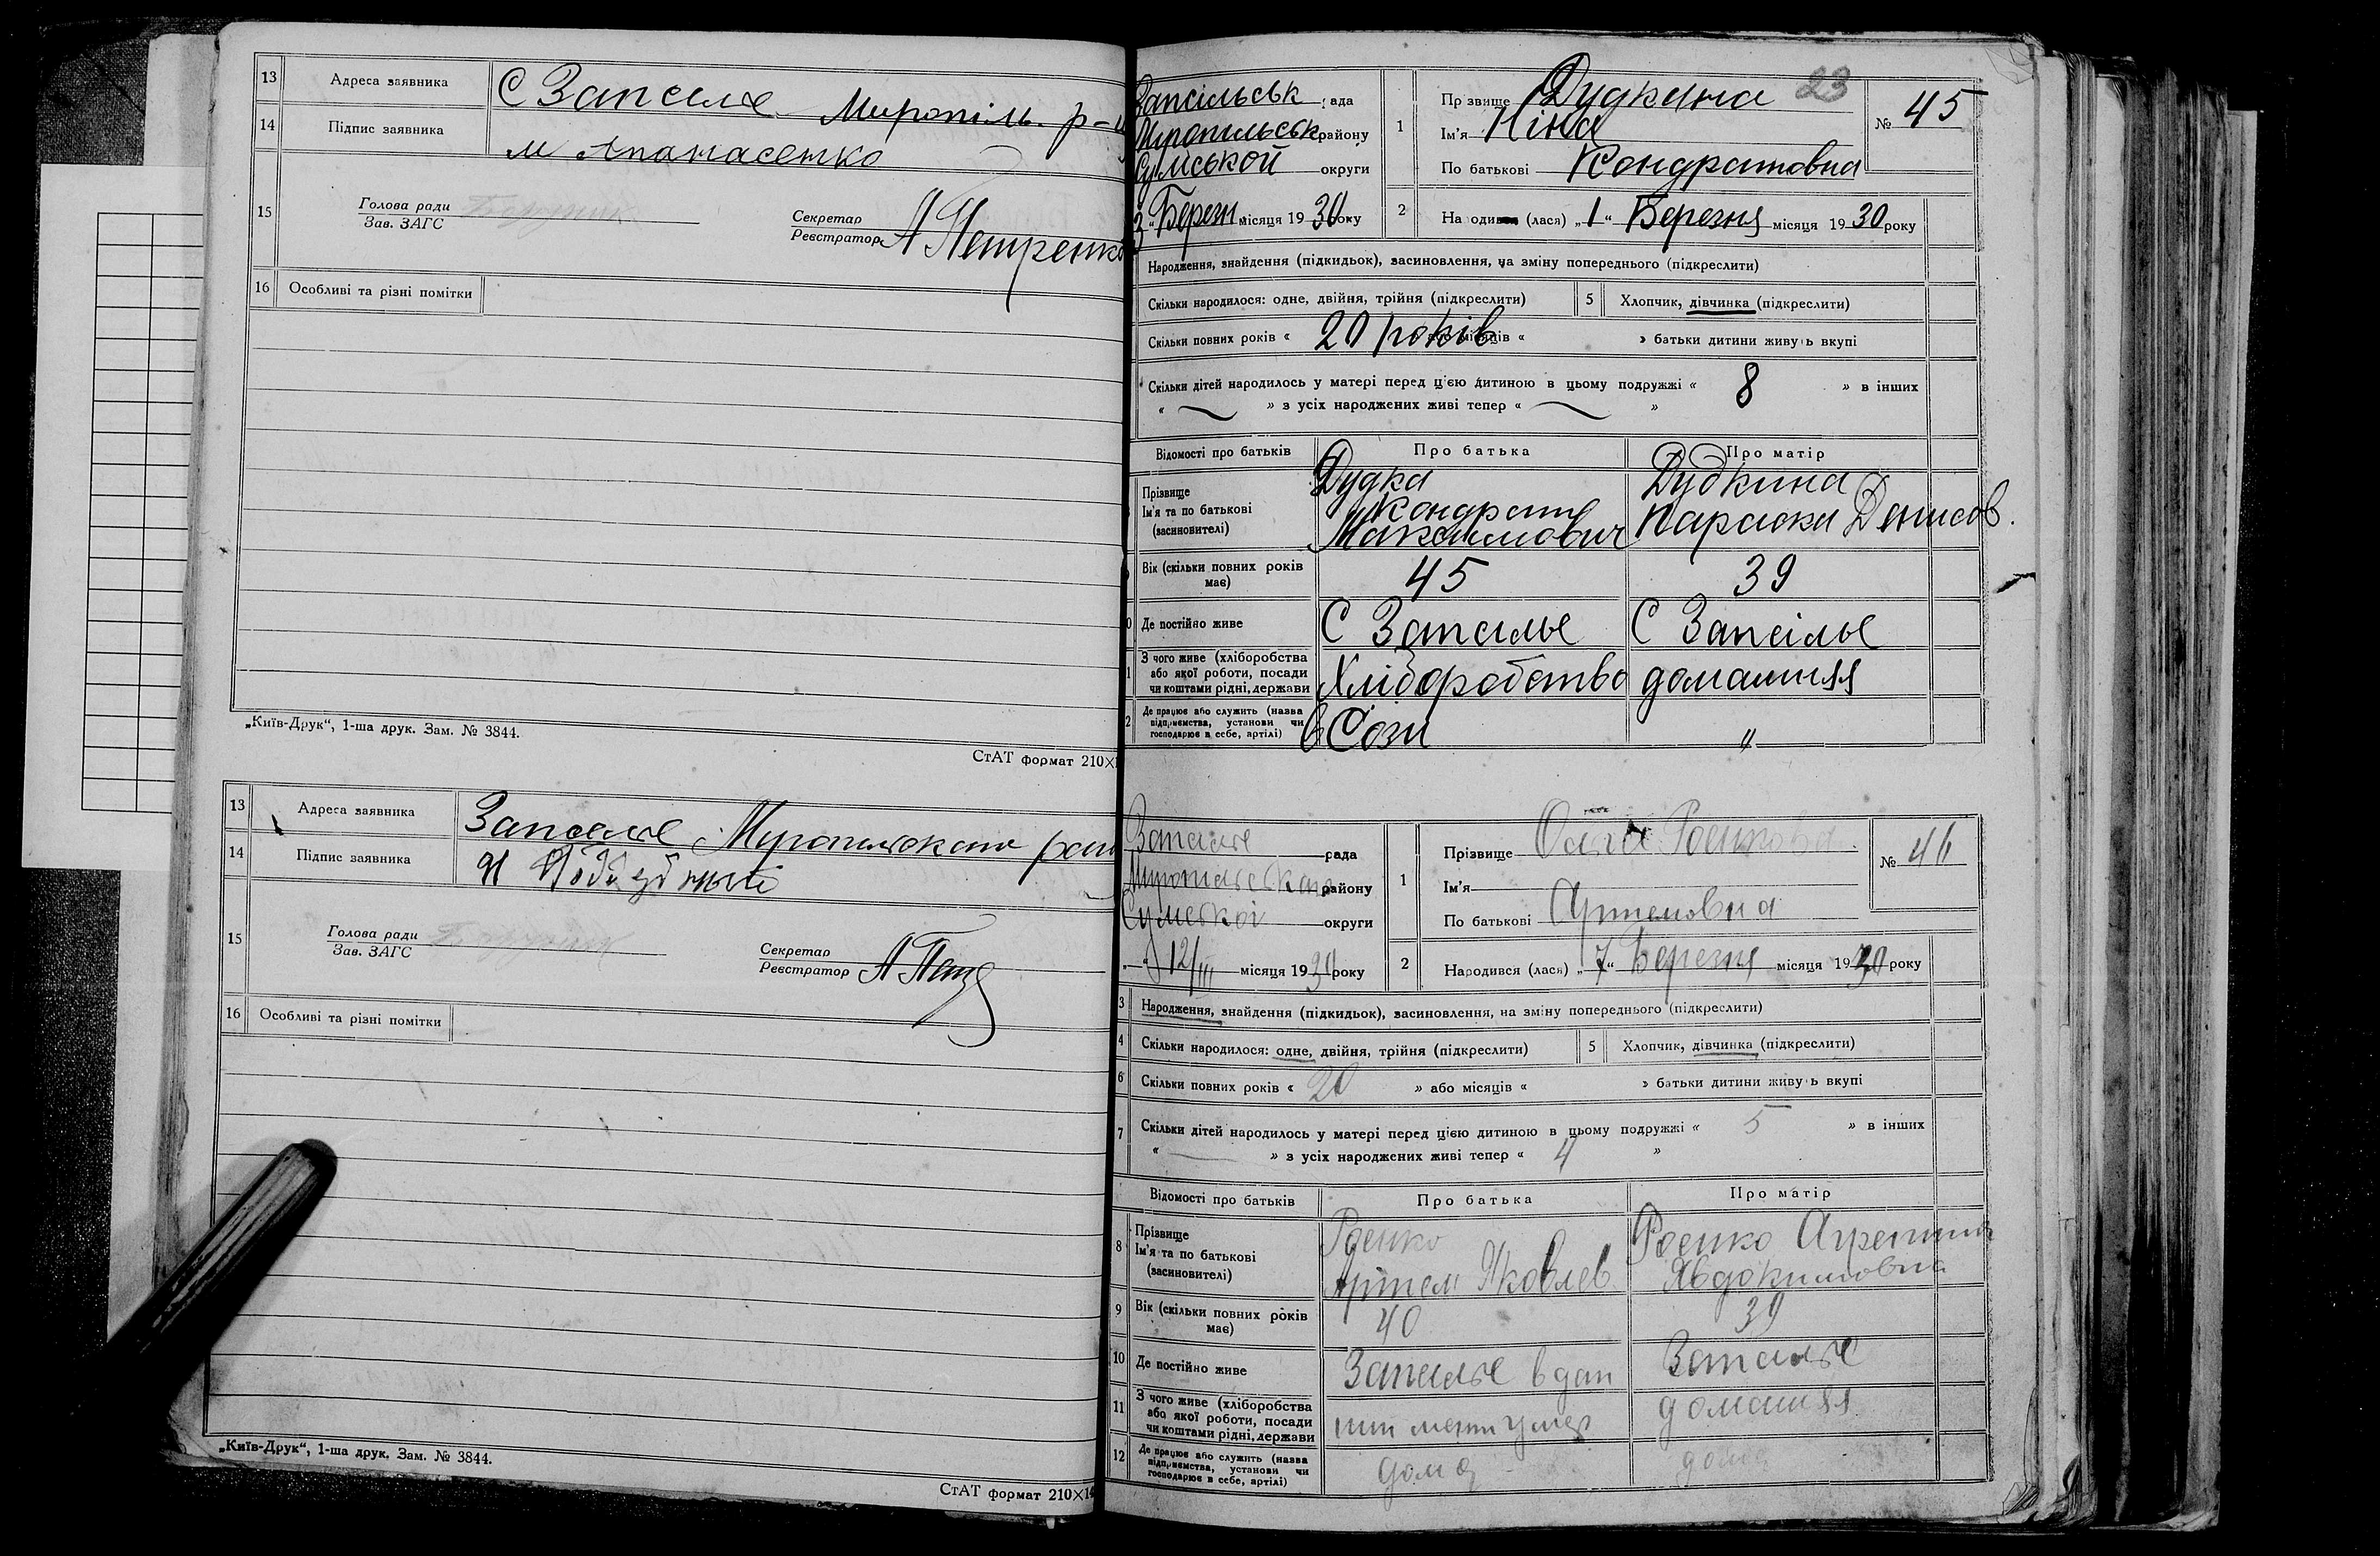 13 Адреса заявника С Запсілье Миропіль. р-н
14 Підпис заявника м Апанасенко
15 Голова ради
Зав. ЗАГС
Секретар
Реєстратор А Петренко
16 Особливі та різні помітки
„Київ-Друк“, 1-ша друк. Зам. № 3844.
СтАТ формат 210×1
13 Адреса заявника Запселье
14 Підпис заявника
15 Голова ради
Зав. ЗАГС
Секретар
Реєстратор А Пет
16 Особливі та різні помітки
„Київ-Друк“, 1-ша друк. Зам. № 3844.
СтАТ формат 210×14
23
Запсільськ рада
Миропільськ району
Сумської округи
3 „Березн місяця 1930 року
1 Прізвище Дудкина
Ім'я Ніна
По батькові Кондратовна
№ 45
2 Народи (лася) „1“ Березня місяця 1930 року
Народження, знайдення (підкидьок), засиновлення, на зміну попереднього (підкреслити)
Скільки народилося: одне, двійня, трійня (підкреслити) 5 Хлопчик, дівчинка (підкреслити)
Скільки повних років « 20 років місяців « » батьки дитини живуть вкупі
Скільки дітей народилось у матері перед цією дитиною в цьому подружжі « 8 » в інших
« — » з усіх народжених живі тепер « — »
Відомості про батьків Про батька Про матір
Прізвище
Ім'я та по батькові
(засиновителі)
Дудка
Кондрат
Максимович
Дудкина
Параска Денисов.
Вік (скільки повних років має) 45 39
Де постійно живе С Запсілье С Запсілье
З чого живе (хліборобства або якої роботи, посади чи коштами рідні, держави Хліборобство домашня
Де працює або служить (назва підприємства, установи чи господарює в себе, артілі) в Созі "
Запселье рада
району
Сумської округи
12/III місяця 1930 року
1 Прізвище Ольга Роенкова
Ім'я
По батькові Артемовна
№ 46
2 Народився (лася) „7“ Березня місяця 1930 року
3 Народження, знайдення (підкидьок), засиновлення, на зміну попереднього (підкреслити)
4 Скільки народилося: одне, двійня, трійня (підкреслити) 5 Хлопчик, дівчинка (підкреслити)
6 Скільки повних років « 20 » або місяців « » батьки дитини живуть вкупі
7 Скільки дітей народилось у матері перед цією дитиною в цьому подружжі « 5 » в інших
« — » з усіх народжених живі тепер « 4 »
Відомості про батьків Про батька Про матір
8 Прізвище
Ім'я та по батькові
(засиновителі)
Роенко
Артем Яковлев
Роенко Агрепина
Явдокимовна
9 Вік (скільки повних років має) 40 39
10 Де постійно живе Запселье в дан Запселье
11 З чого живе (хліборобства або якої роботи, посади чи коштами рідні, держави умер домашня
12 Де працює або служить (назва підприємства, установи чи господарює в себе, артілі) дома дома